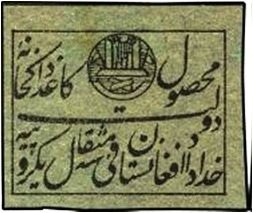 محصول کاغذ داکخانه
دولت
خداداد افغانستان فی سه مثقال یکروپیه